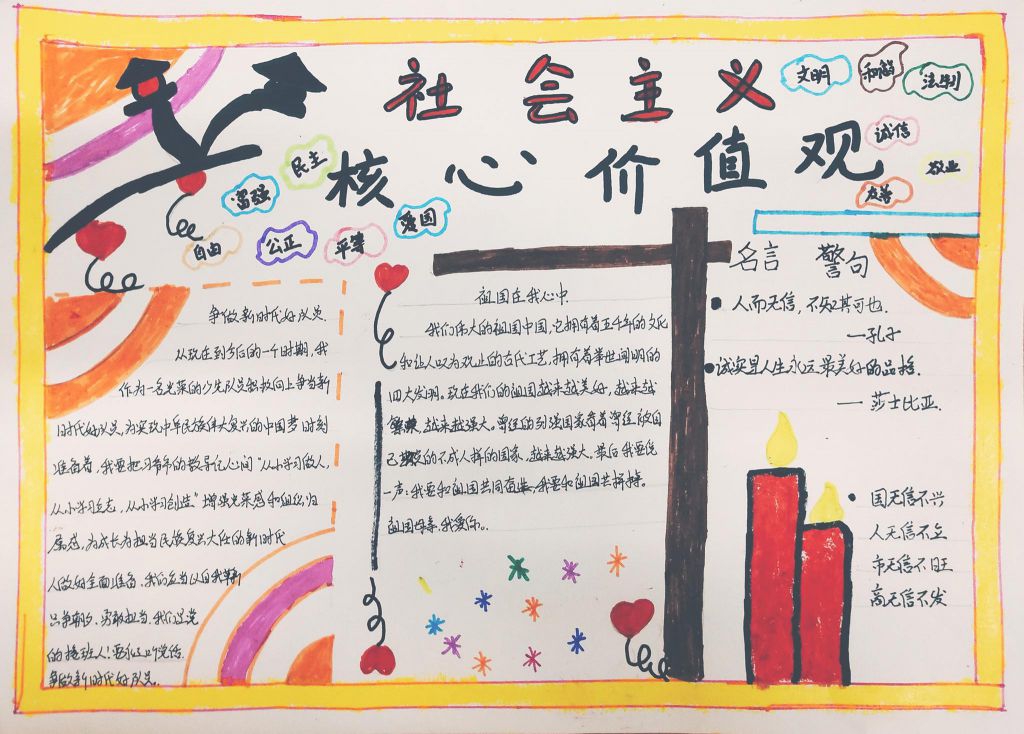 社会主义
核心价值观
文明
和谐
法制
诚信
敬业
友善
民主
富强
自由
公正
平等
爱国
争做新时代好队员.
从现在到今后的一个时期,我
作为一名光荣的少先队员积极向上争当新
时代好队员,为实现中华民族伟大复兴的中国梦时刻
准备着,我要把习爷爷的教导记心间“从小学习做人,
从小学习立志,从小学习创造”增强光荣感和组织归
属感,为成长为担当民族复兴大任的新时代
人做好全面准备.我们应当以自我革新
只争朝夕.勇敢担当.我们是党
的接班人!要永远听党话.
争做新时代好队员.
祖国在我心中
我们伟大的祖国中国,它拥有着五千年的文化
和让人叹为观止的古代工艺,拥有着举世闻明的
四大发明。现在我们的祖国越来越美好,越来越
繁荣,越来越强大。曾经的列强国家看着曾经被自
己欺的不成人样的国家,越来越强大。最后我要说
一声:我要和祖国共同奋进,我要和祖国共拼搏。
祖国母亲.我爱你。
名言 警句
人而无信,不知其可也.
—孔子
诚实是人生永远最美好的品格.
— 莎士比亚.
国无信不兴
人无信不立
市无信不旺
商无信不发